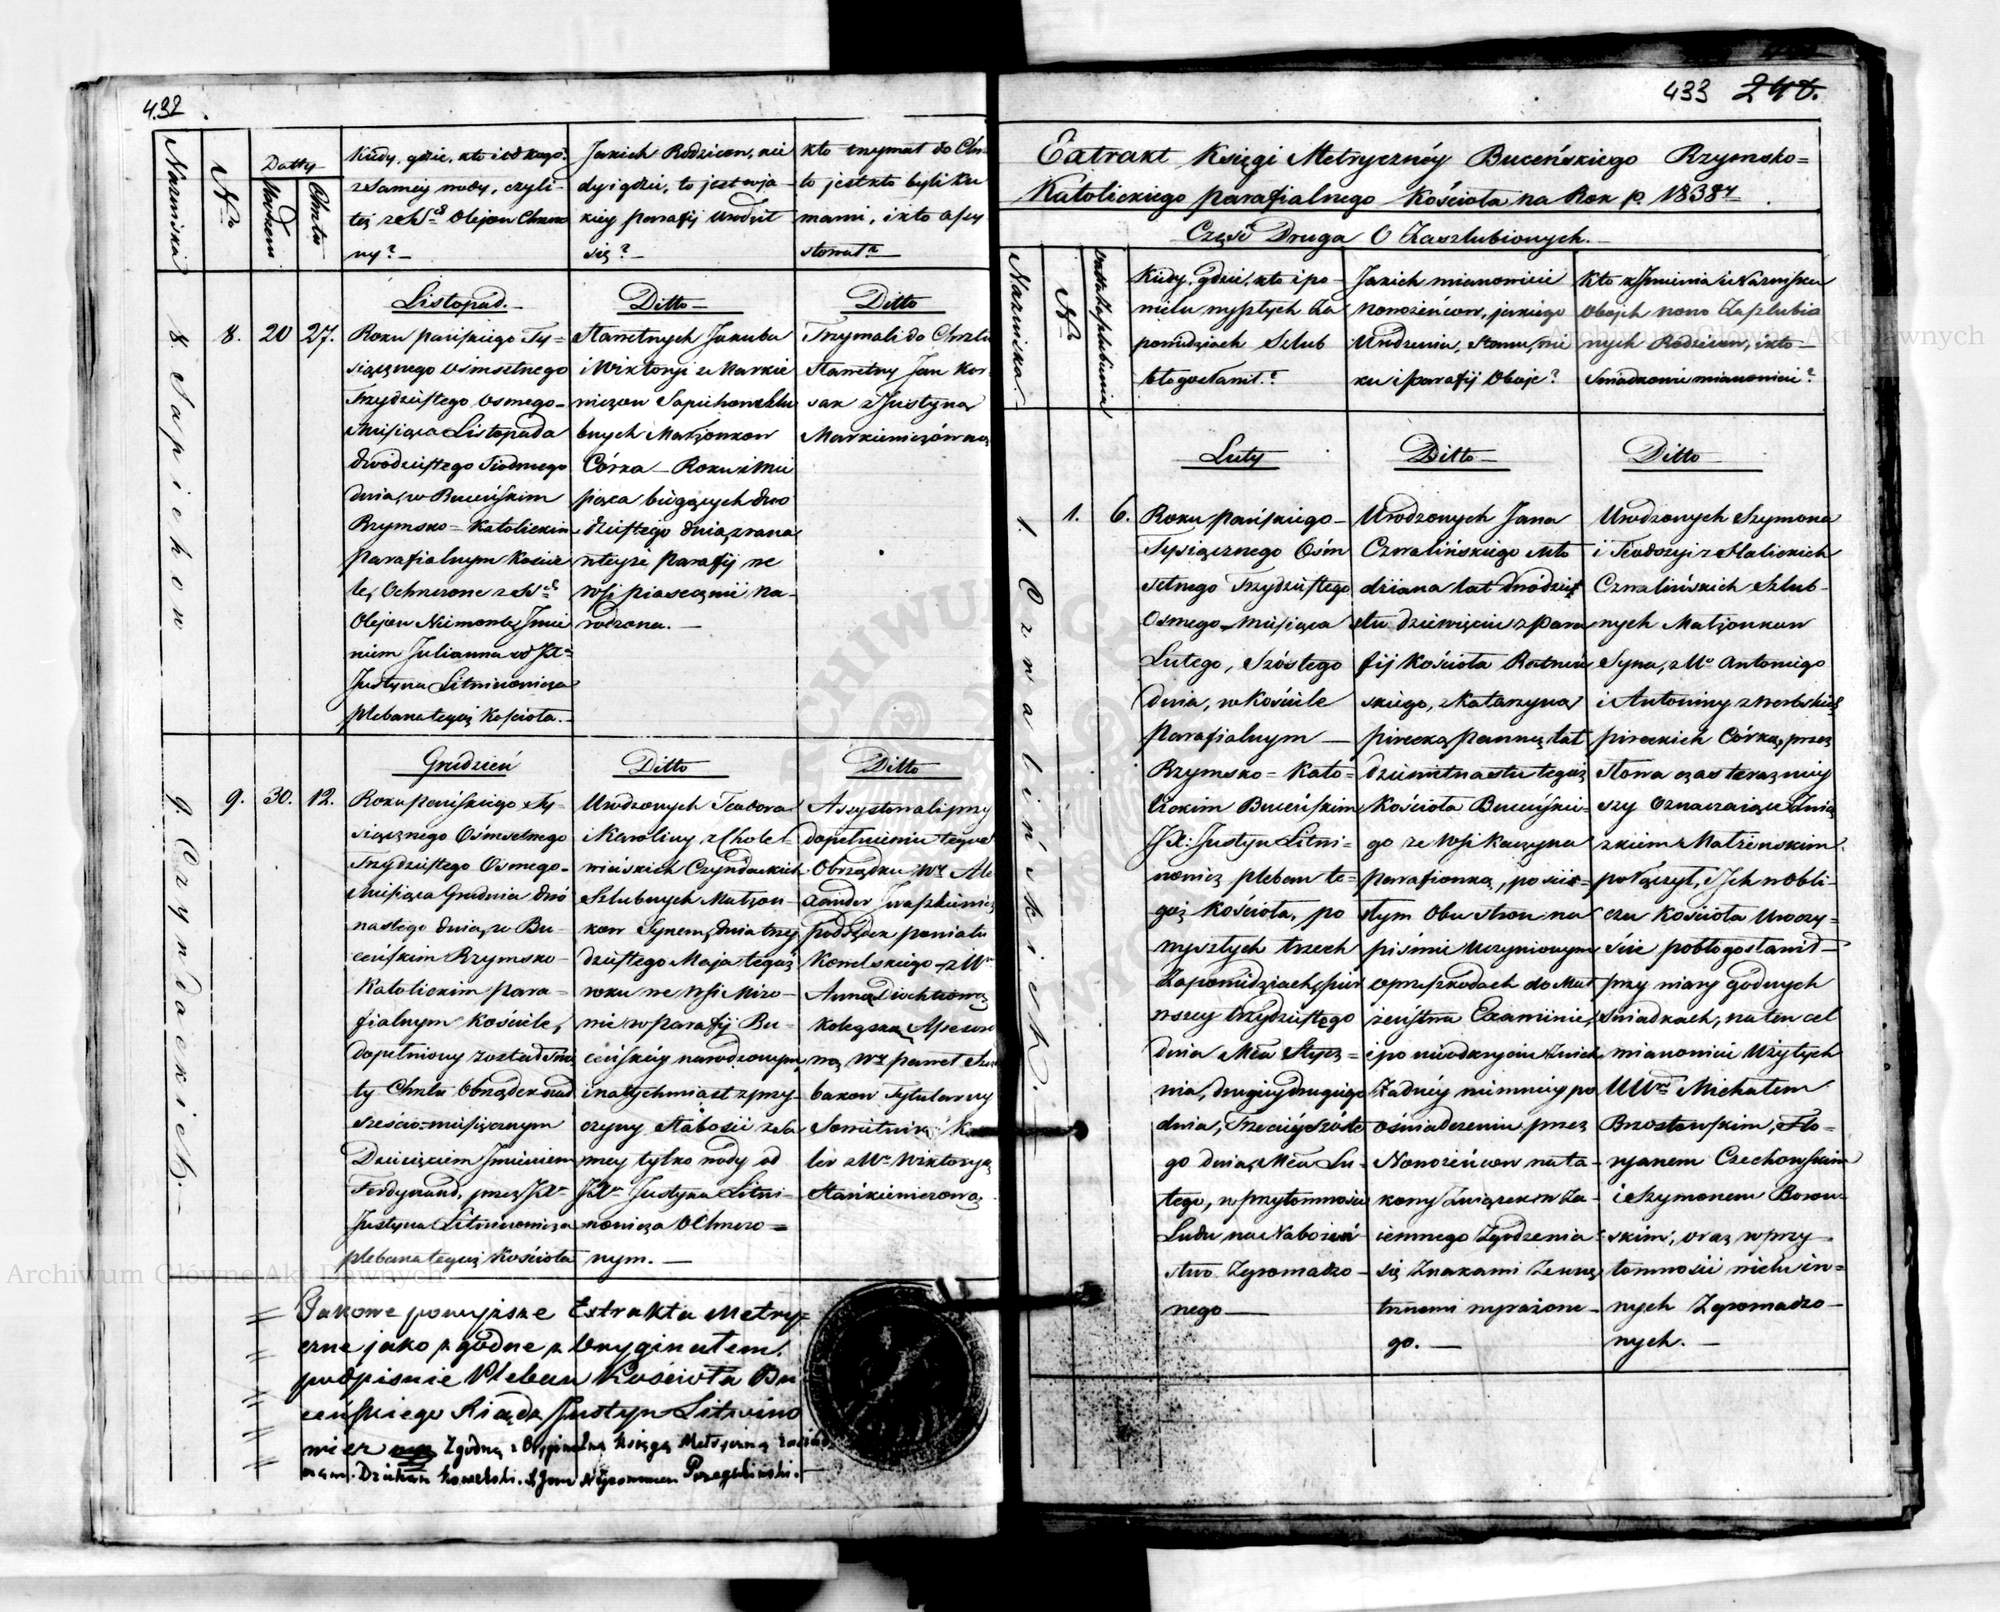 432
433 240.
Nazwiska
Nro
Datty
Urodzeń
Chrztu
Kiedy, gdzie, kto i od kogo?
z Samey wody, czyli
też z SS. Olejow Chrzczo
ny?
Jakich Rodzicow, kie
dy i gdzie, to jest w ja
kiey parafij Urodził
się?
Kto trzymał do Chrz
to jest kto byli Ku
mami, i kto assy
stował?
8. Sapiehow
8. 20 27.
Listopad.
Roku pańskiego Ty-
siącznego ośmsetnego
Trzydziestego osmego
Miesiąca Listopada
dwudziestego Siodmego
dnia, w Buceńskim
Rzymsko = Katolickim
parafialnym Koście
le, Ochrzczone z SS.
Olejow Niemowle, Imie
niem Julianna od JX.
Justyna Litwinowicza
plebana tegoż Kościoła.
Ditto
Sławetnych Jakuba
i Wiktoryi z Markie
wiczow Sapiehow Szlu
bnych Małżonkow
Córka Roku i Mie
siąca bieżących dwo
dziestego dnia zrana
w teyże parafij we
wsi piasecznie Na-
rodzona.
Ditto
Trzymali do Chrztu
Sławetny Jan Kor
sak z Justyną
Markiewiczówną
9. Czyndackich.
9. 30. 12.
Grudzień
Roku pańskiego Ty-
siącznego Ośmsetnego
Trzydziestego Osmego
Miesiąca Grudnia dwó
nastego dnia, w Bu-
ceńskim Rzymsko-
Katolickim para-
fialnym Kościele,
dopełniony został Świę
ty Chrztu Obrządek nad
sześcio-miesięcznym
Dziecięciem Imieniem
Ferdynand, przez JX.
Justyna Litwinowicza
plebana tegoż Kościoła
Ditto
Urodzonych Teodora
i Karoliny z Cholel-
wińskich Czyndackich
Szlubnych Małżon-
kow Synem, dnia trzy
dziestego Maja tegoż
roku we wsi Miro-
nie w parafij Bu-
ceńskiéy narodzonym,
i natychmiast z przy-
czyny Słabości z sa
mey tylko wody od
JX. Justyna Litwi-
nowicza Ochrzczo=
nym.
Ditto
Assystowali przy
dopełnieniu tegoż
Obrządku Wny Ale
xander Iwaszkiewicz
podsędek powiatu
Kowelskiego z Wną
Anną
Kolegską Assesoro
wą, Wny paweł
bakow Tytularny
Sowietnik
ler z Wną Wiktoryą
Stankiewiczową.
Jakowe powyższe Extrakta Metry=
czne jako zgodne z Oryginałem.
podpisuie Pleban Kościoła Bu
ceńskiego Xiądz Justyn Litwino
wicz mp Zgodną z Oryginalną Księgą Metryczną zaświad
czam. Dziekan Kowelski.
Extrakt Księgi Metrycznéy Buceńskiego Rzymsko=
Katolickiego parafialnego Kościoła na Rok p. 1838y
Część Druga O Zaszlubionych.
Nazwiska
Nro
Datta Zaszlubienia
Kiedy, gdzie, kto i po
wielu wyszłych Za
powiedziach Szlub
błogosławił?
Jakich mianowicie
Nowożeńcow, jakiego
Urodzenia, Stanu, wie
ku i parafij Oboje?
Kto z Imienia i Nazwiska
Oboych nowo Zaszlubio
nych Rodzicow, i kto
Świadkowie mianowicie?
1. Czwalińskich.
1. 6.
Luty
Roku pańskiego
Tysiącznego Ośm
setnego Trzydziestego
Osmego Miesiąca
Lutego, Szóstego
dnia, w Kościele
Parafialnym
Rzymsko = Kato-
lickim Buceńskim
JX: Justyn Litwi-
nowicz pleban te-
goż Kościoła, po
wyszłych trzech
Zapowiedziach, pier
wszey trzydziestego
dnia Mca Stycz=
nia, drugiey drugiego
dnia, Trzeciéy Szóste
go dnia Mca Lu-
tego, w przytomności
Ludu na Nabożeń
stwo Zgromadzo-
nego
Ditto
Urodzonych Jana
Czwalińskiego Mło
dziana lat dwódzies
stu dziewięciu z para
fij Kościoła Ratnień
skiego, z Katarzyną
pirecką panną lat
dziewietnastu tegoż
Kościoła Buceńskie-
go ze Wsi Kaczyna
parafianką, po ści
słym Obu stron na
piśmie Uczynionym
o przeszkodach do Mał
żeństwa Examinie,
i po nieodkryciu Zwich
żadnéy niemniey po
oświadczeniu przez
Nowożeńcow na ta-
kowy Związek w Za-
iemnego Zgodzenia
się Znakami Zewnę
trznemi wyrażone-
go.
Ditto
Urodzonych Szymona
i Teodozyi z Halickich
Czwalińskich Szlub-
nych Małżonkow
Syna, z Ur. Antoniego
i Antoniny z Werbskich
pireckich Córkę, przez
słowa czas teraźniey
szy Oznaczaiące Zwią
zkiem Małżenskim
połączył, Ich w Obli-
czu Kościoła Uroczy-
ście pobłogosławił
przy wiary godnych
świadkach, na ten cel
mianowicie Użytych
UUr. Michałem
Brzostowskim, Flo-
ryanem Czechowskim
i Szymonem Borow-
skim, oraz w przy
tomności wielu in=
nych Zgromadzo-
nych.
Archiwum Główne Akt Dawnych
Archiwum Główne Akt Dawnych